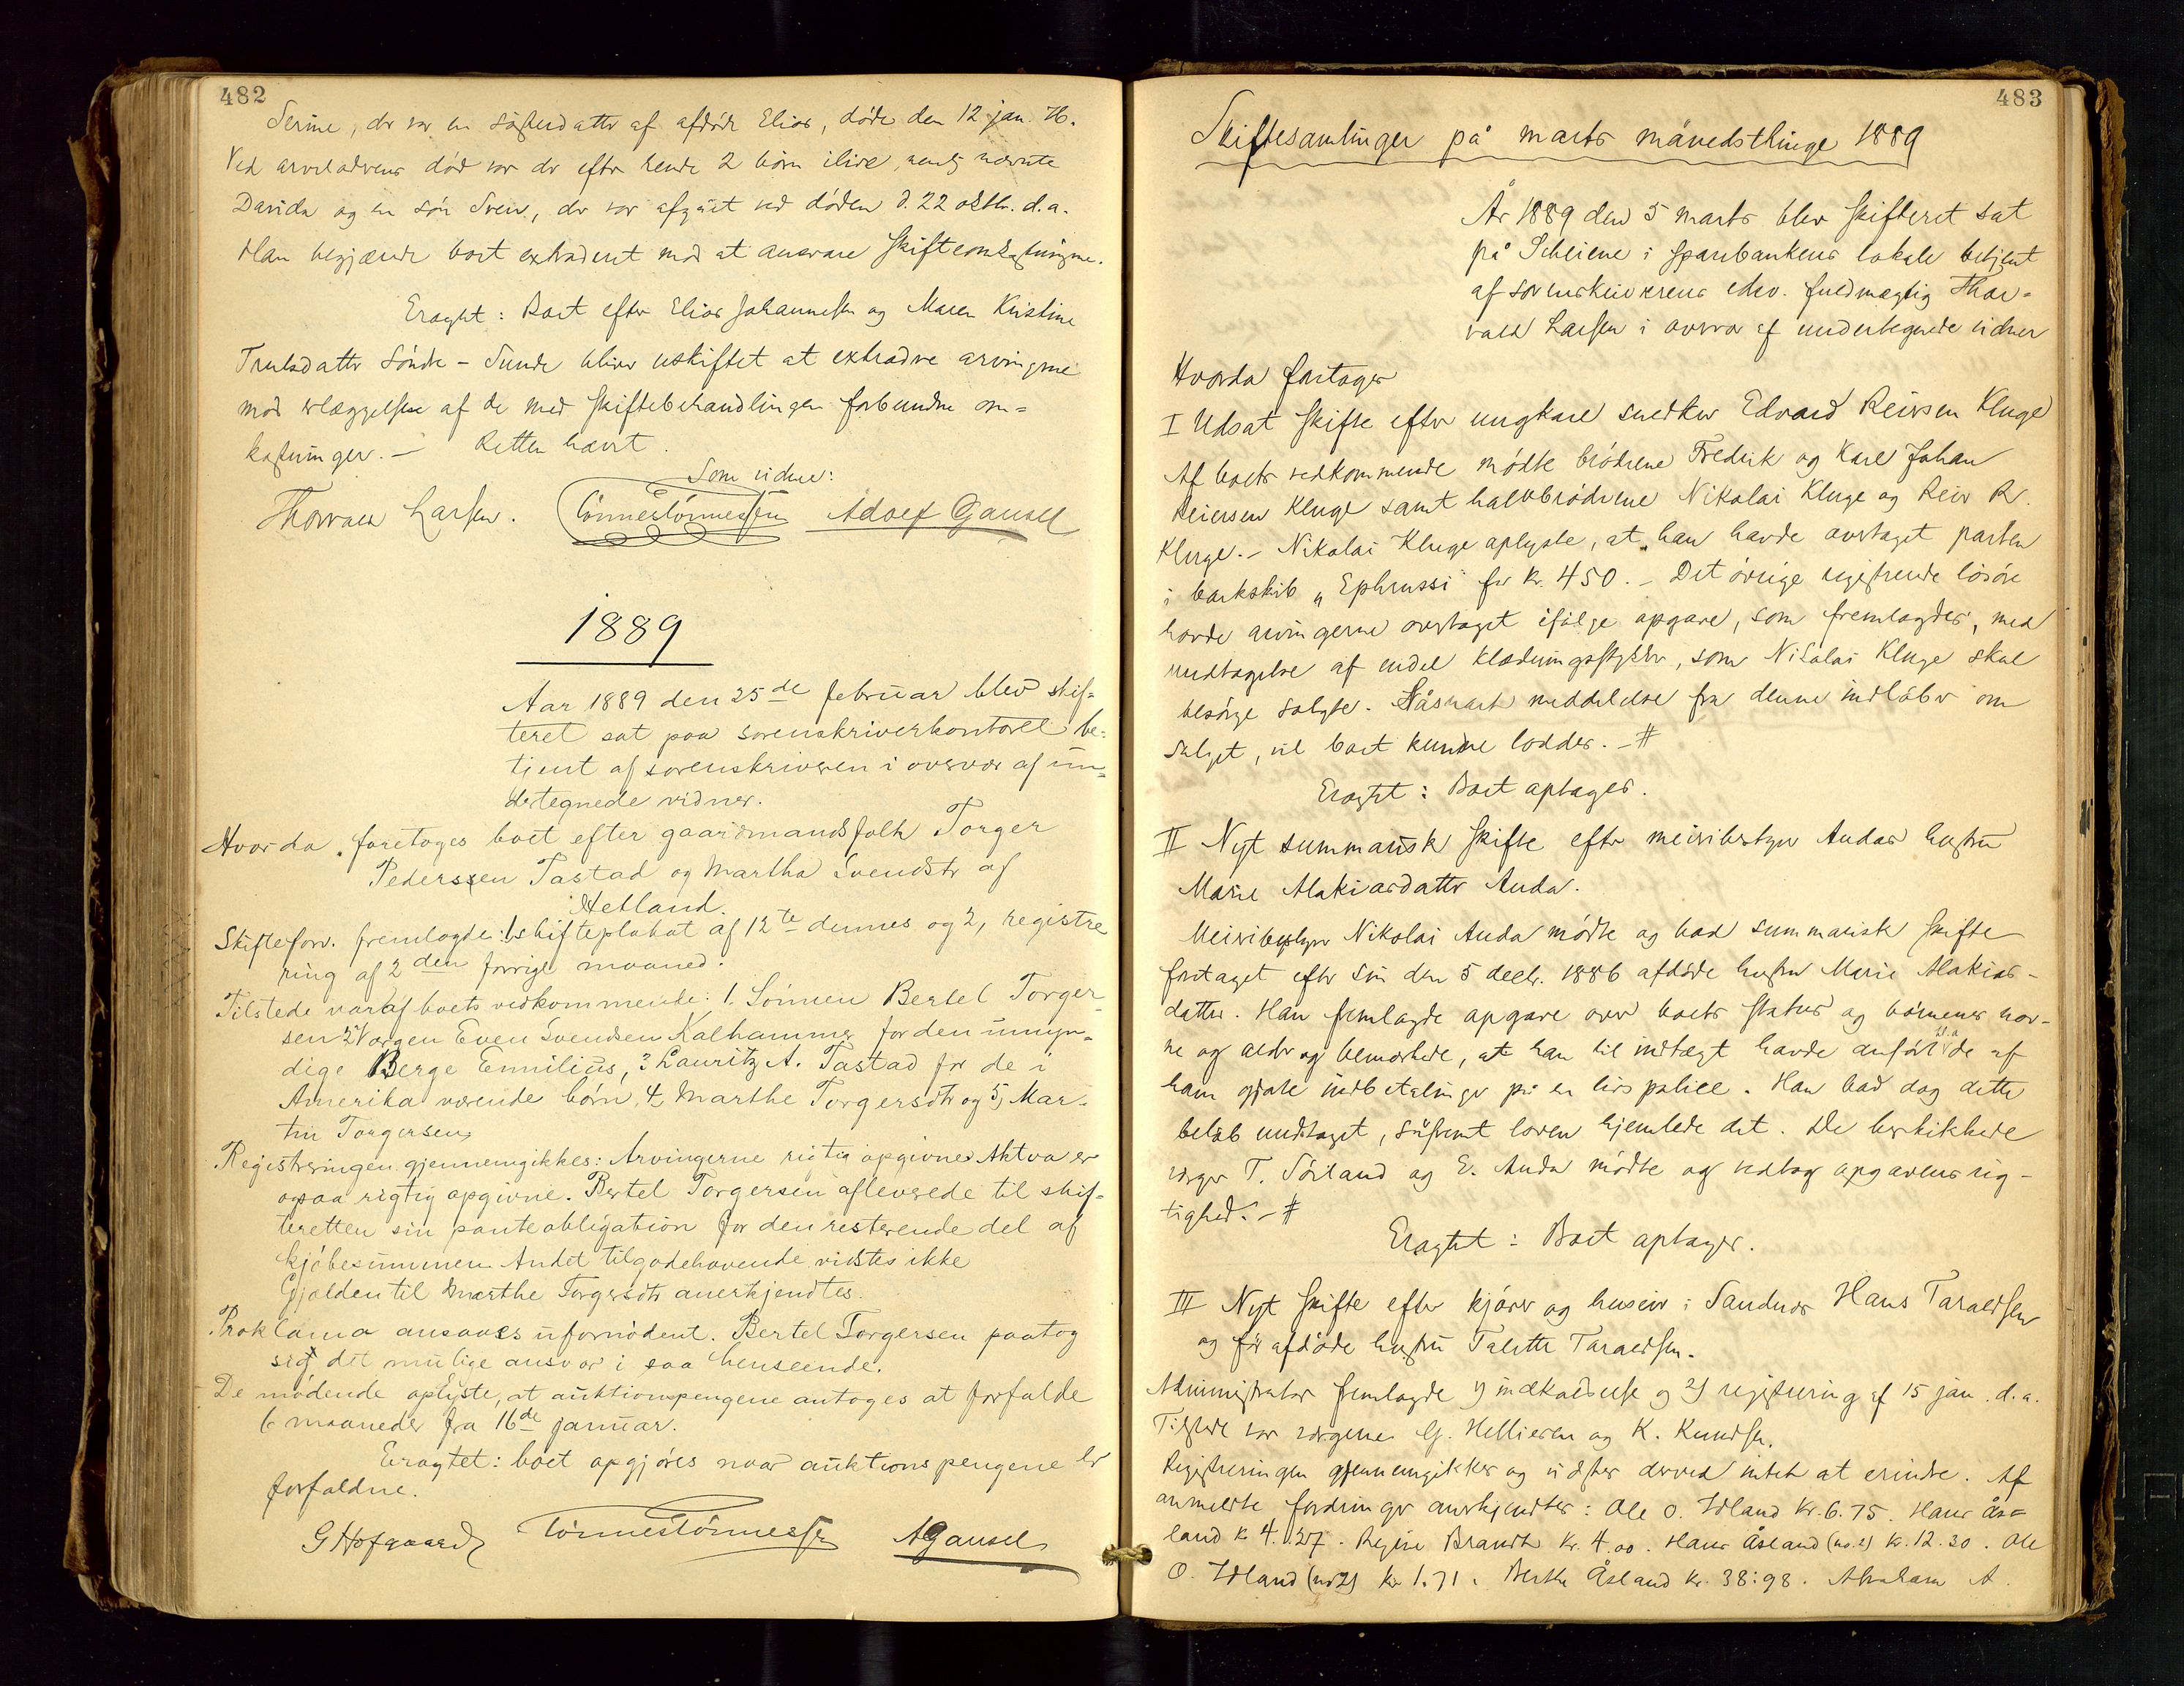 482
Serine, der var en søsterdatter af afdøde Elias, døde den 12 jan. 76.
Ved arveladerens død var der efter hende 2 børn ilive, nemlig nævnte
Davida og en søn Svein, der var afgåt ved døden d. 22 oktbr. d.a.
Han begjærede boet extraderet mod at ansvare skifteomkostningerne.
Eragtet: Boet efter Elias Johannessen og Maren Kristine
Trulsdatter Sönde - Sunde bliver uskiftet at extradere arvingerne
mod erlæggelse af de med skiftebehandlingen forbundne om=
kostninger. — Retten hævet.
Som vidner:
Thorvald Larsen. Tönnes Tönnessen Adolf Gausel
1889
Aar 1889 den 25de februar blev skif=
teret sat paa sorenskriverkontoret be=
tjent af sorenskriveren i overvær af un=
dertegnede vidner.
Hvorda foretoges boet efter gaardmandsfolk Torger
Pederssen Tastad og Martha Svendsdtr af
Hetland.
Skifteforv. fremlagde: 1, skifteplakat af 12te dennes og 2, registre
ring af 2den forrige maaned.
Tilstede var af boets vedkommende: 1. Sönnen Bertel Torger=
sen 2, Vergen Even Svendsen Kalhammer for den umyn=
dige Berge Emilius, 3 Lauritz A. Tastad for de i
Amerika værende børn, 4, Marthe Torgersdtr og 5, Mar=
tin Torgersen,
Registreringen gjennemgikkes: Arvingerne rigtig opgivne. Aktva er
ogsaa rigtig opgivne. Bertel Torgersen afleverede til skif=
teretten sin panteobligation for den resterende del af
kjöbesummen. Andet tilgodehavende vidstes ikke
Gjælden til Marthe Torgersdtr anerkjendtes.
Proklama ansaaes ufornödent. Bertel Torgersen paatog
sig det mulige ansvar i saa henseende.
De mödende oplyste, at auktionspengene antoges at forfalde
6 maaneder fra 16de januar.
Eragtet: boet opgjöres naar auktionspengene er
forfaldne.
G Hofgaard Tönnes Tönnessen A Gausel
483
Skiftesamlinger på marts månedsthinge 1889
År 1889 den 5 marts blev skifteret sat
på Scheiene i sparebankens lokale betjent
af sorenskriverens edsv. fuldmægtig Thor=
vald Larsen i overvær af undertegnede vidner
Hvorda foretoges
I Udsat skifte efter ungkarl snedker Edvard Reiersen Kluge
Af boets vedkommende mødte brødrene Fredrik og Karl Johan
Reiersen Kluge samt halvbrødrene Nikolai Kluge og Reier R.
Kluge. – Nikolai Kluge oplyste, at han havde overtaget parten
i barkskib „Ephrussi" for Kr. 450. – Det øvrige registrerede løsøre
havde arvingerne overtaget ifølge opgave, som fremlagdes, med
undtagelse af endel klædningsstykker, som Nikolai Kluge skal
besørge solgte. Såsnart meddelelse fra denne indløber om
salget, vil boet kunne loddes. – #
Eragtet: Boet optages.
II Nyt summarisk skifte efter meieribestyrer Andas hustru
Marie Malakiasdatter Anda.
Meieribestyrer Nikolai Anda mødte og bad summarisk skifte
foretaget efter sin den 5 decbr. 1886 afdøde hustru Marie Malakias-
datter. Han fremlagde opgave over boets status og børnenes nav-
ne og alder og bemærkede, at han til indtægt havde anført bl.a. de af
ham gjorte indbetalinger på en livspolice. Han bad dog dette
beløb undtaget, såfremt loven hjemlede det. De beskikkede
verger T. Sörland og E. Anda mødte og vedtog opgavens rig-
tighed. – #
Eragtet: Boet optages.
III Nyt skifte efter kjører og huseier i Sandnes Hans Taraldsen
og før afdøde hustru Talette Taraldsen.
Administrator fremlagde 1) indkaldelse og 2) registrering af 15 jan. d.a.
Tilstede var vergene G. Hellieren og K. Knudsen.
Registreringen gjennemgikkes og vidstes derved intet at erindre. Af
anmeldte fordringer anerkjendtes: Ole O. Idland Kr. 6.75. Hans Ås=
land Kr 4.27. Regine Brandt Kr. 4.00. Hans Åsland (no. 2) Kr. 12.30. Ole
O. Idland (no 2) Kr 1.71. Berthe Åsland Kr. 38.98. Abraham A.